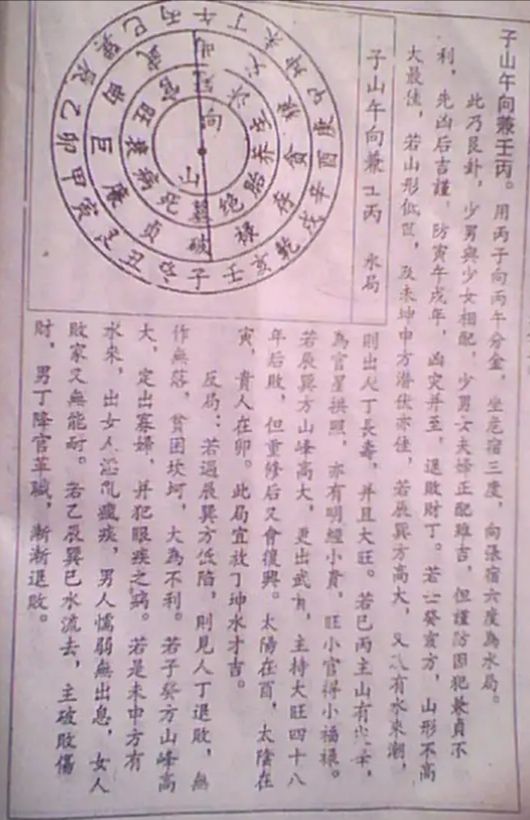 子山午向兼壬丙。用丙子向丙午分金，坐危宿三度，向張宿六度為水局。
此乃艮卦，少男與少女相配，少男女夫婦正配雖吉，但謹防因犯兼貞不
利，先凶后吉謹，防寅午戌年，凶灾并至，退敗財丁。若壬癸亥方，山形不高
大最佳，若山形低，及未坤申方潜伏亦佳，若辰巽方高大，又有水来潮，
子山午向兼壬丙 水局
午丁未坤申庚酉辛戌乾亥壬子癸丑艮寅甲卯乙辰巽巳丙
狼貪存禄破貞廉巨尚武
沐生养胎绝墓死病衰旺官
向
山
則出人丁長壽，并且大旺。若巳丙主山有尖峰，
為官星拱照，亦有明經小貴，旺小官得小福禄。
若辰巽方山峰高大，更出武，主持大旺四十八
年后敗，但重修后又會復興。太陽在酉，太陰在
寅，貴人在卯。此局宜放丁坤水才吉。
反局：若過辰巽方低陷，則見人丁退敗，無
作無落，貧困坎坷，大為不利。若子癸方山峰高
大，定出寡婦，并犯眼疾之病。若是未申方有
水来，出女人淫亂疾，男人懦弱無出息，女人
敗家又無能耐。若乙辰巽巳水流去，主破敗傷
財，男丁降官革職，漸漸退敗。